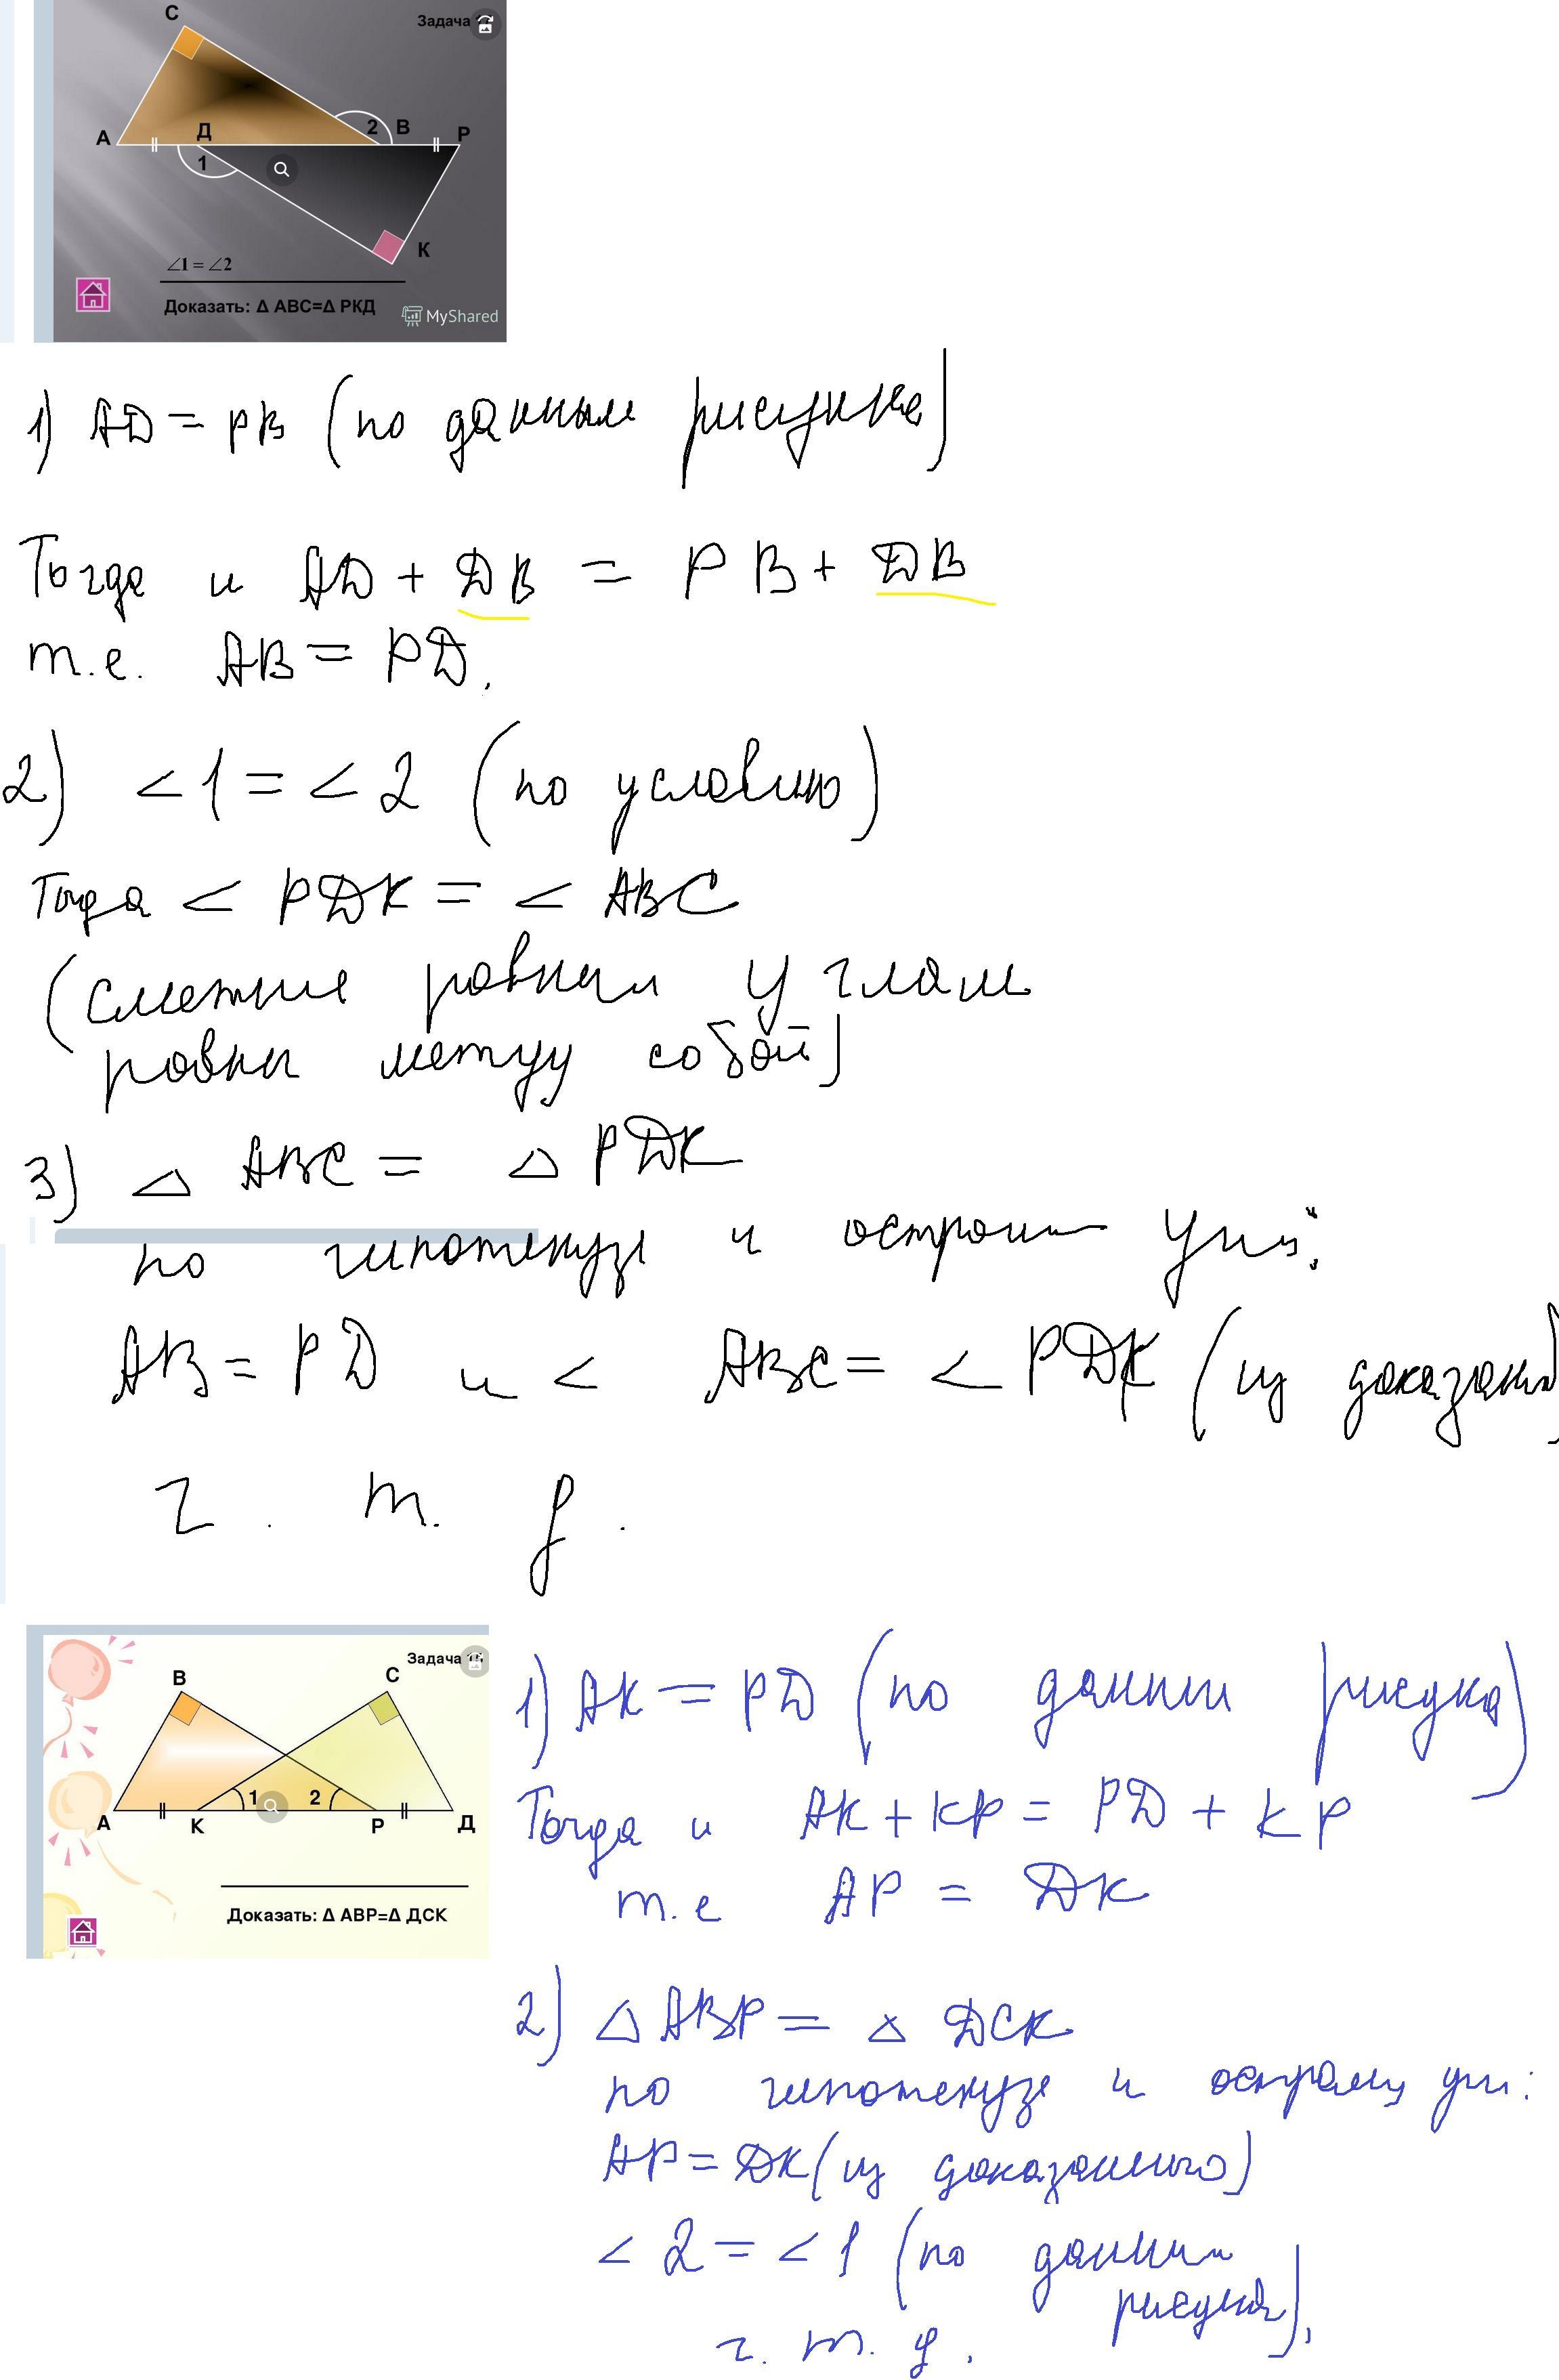 Задача
С
А
Д
2
В
Р
1
К
∠1 = ∠2
Доказать: Δ АВС=Δ РКД
MyShared
1) АД = РВ (по данным рисунка)
Тогда и АД + ДВ = РВ + ДВ
т.е. АВ = РД.
2) < 1 = < 2 (по условию)
Тогда < РДК = < АВС
(смежные равным углам
равны между собой)
3) Δ АВС = Δ РДК
по гипотенузе и острому углу:
АВ = РД и < АВС = < РДК (из доказанн)
ч. т. д.
Задача 15
В
С
А
К
1
2
Р
Д
Доказать: Δ АВР=Δ ДСК
1) АК = РД (по данным рисунка)
Тогда и АК + КР = РД + КР
т.е АР = ДК
2) Δ АВР = Δ ДСК
по гипотенузе и острому углу:
АР = ДК (из доказанного)
< 2 = < 1 (по данным
рисунка),
ч. т. д.